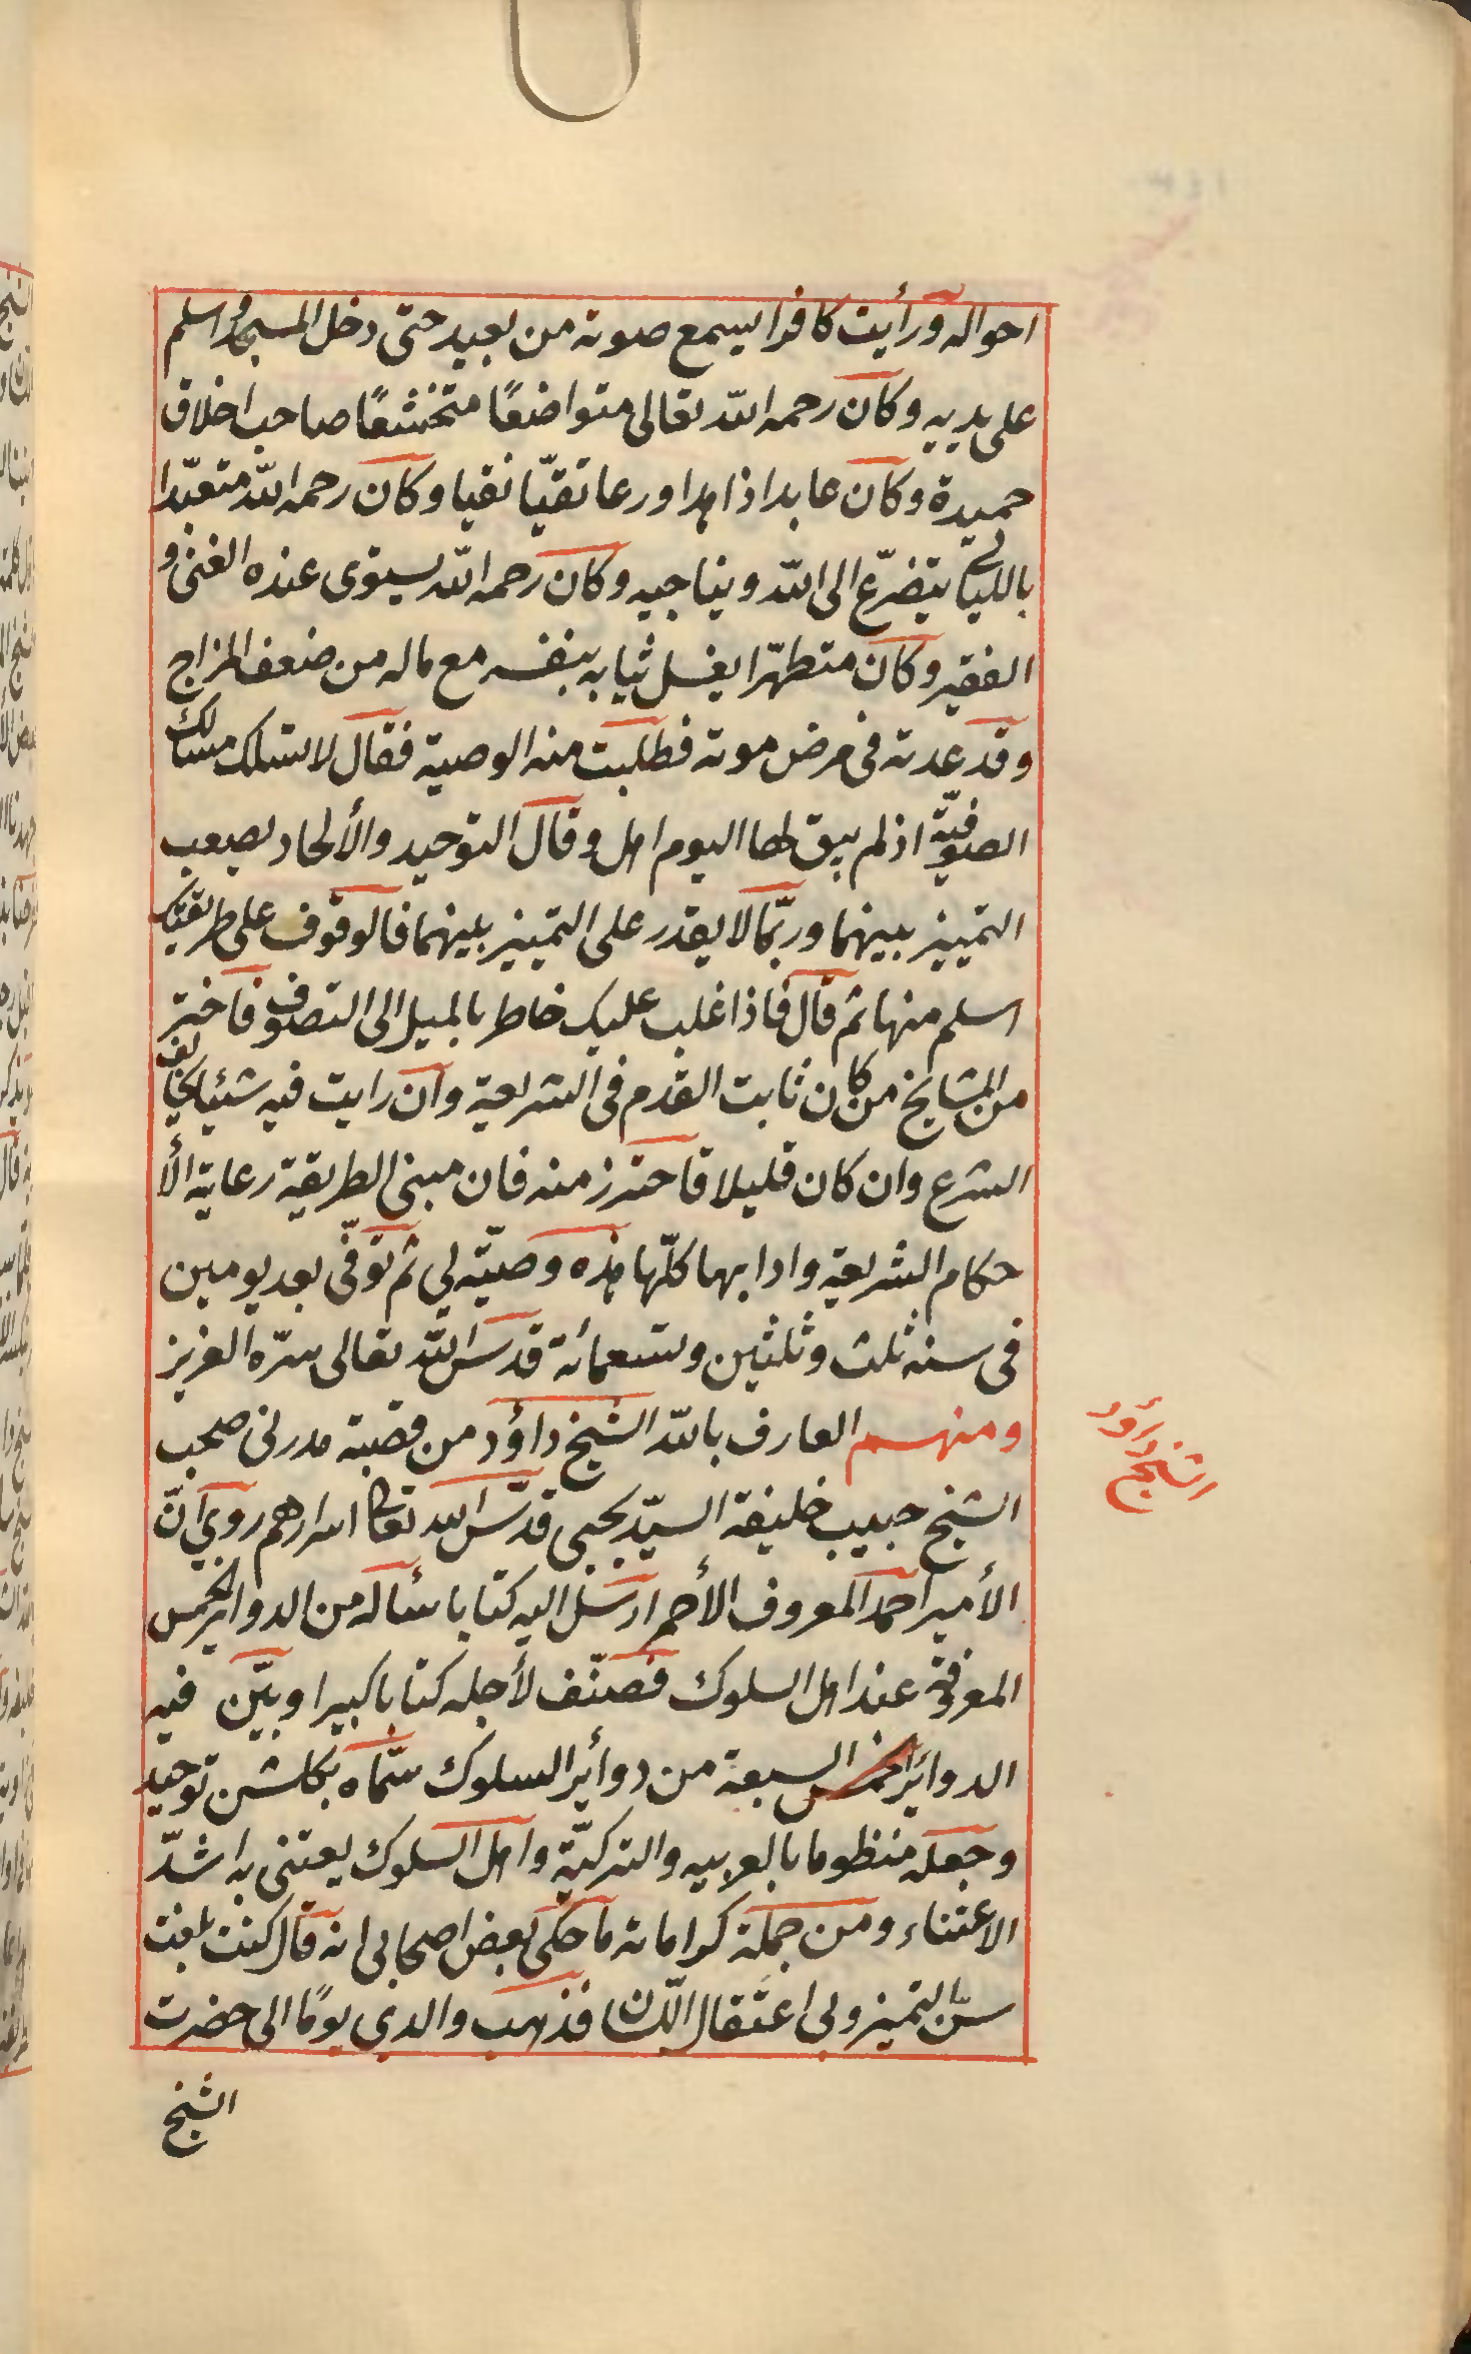 احواله ورأيت كافرا يسمع صوته من بعيد حتى دخل المسجد واسلم
على يديه وكان رحمه الله تعالى متواضعًا متخشعًا صاحب اخلاق
حميدة وكان عابدا زاهدا ورعا تقيّا نقيا وكان رحمه الله متعبّدا
بالليالي يتضرّع الى الله ويناجيه وكان رحمه الله يستوى عنده الغنى و
الفقير وكان متطهّرا يغسل ثيابه بنفسه مع ماله من ضعف المزاج
وقد عدته فى مرض موته فطلبت منه الوصية فقال لا تسلك مسالك
الصوفيّة اذ لم يبق لها اليوم اهل وقال التوحيد والألحاد يصعب
التمييز بينهما وربّما لا يقدر على التمييز بينهما فالوقوف على طريقتك
اسلم منها ثم قال فاذا غلب عليك خاطر بالميل الى التصوف فاختر
من المشايخ من كان ثابت القدم فى الشريعة وان رايت فيه شيئا يخالف
الشرع وان كان قليلا فاحترز منه فان مبنى الطريقة رعاية الأ
حكام الشريعة وادابها كلّها هذه وصيّته لي ثم توفّى بعد يومين
فى سنه ثلث وثلثين وتسعمائة قدس الله تعالى سرّه العزيز
ومنهم العارف بالله الشيخ داؤد من قصبة مدرنى صحب
الشيخ داؤد
الشيخ حبيب خليفة السيّد يحيى قدّس الله تعالى اسرارهم روي انّ
الأمير احمد المعروف الأحمر ارسل اليه كتابا سأله من الدوائر الخمس
المعرفة عند اهل السلوك فصنّف لأجله كتابا كبيرا وبيّن فيه
الدوائر الخمس السبعة من دوائر السلوك سمّاه بكلشن توحيد
وجعله منظوما بالعربيه والتركيّة واهل السلوك يعتنى به اشدّ
الاعتناء ومن جملة كراماته ما حكى بعض اصحابى انه قال كنت بلغت
سنّ التميز ولى اعتقال اللسان فذهب والدي يومًا الى حضرت
الشيخ